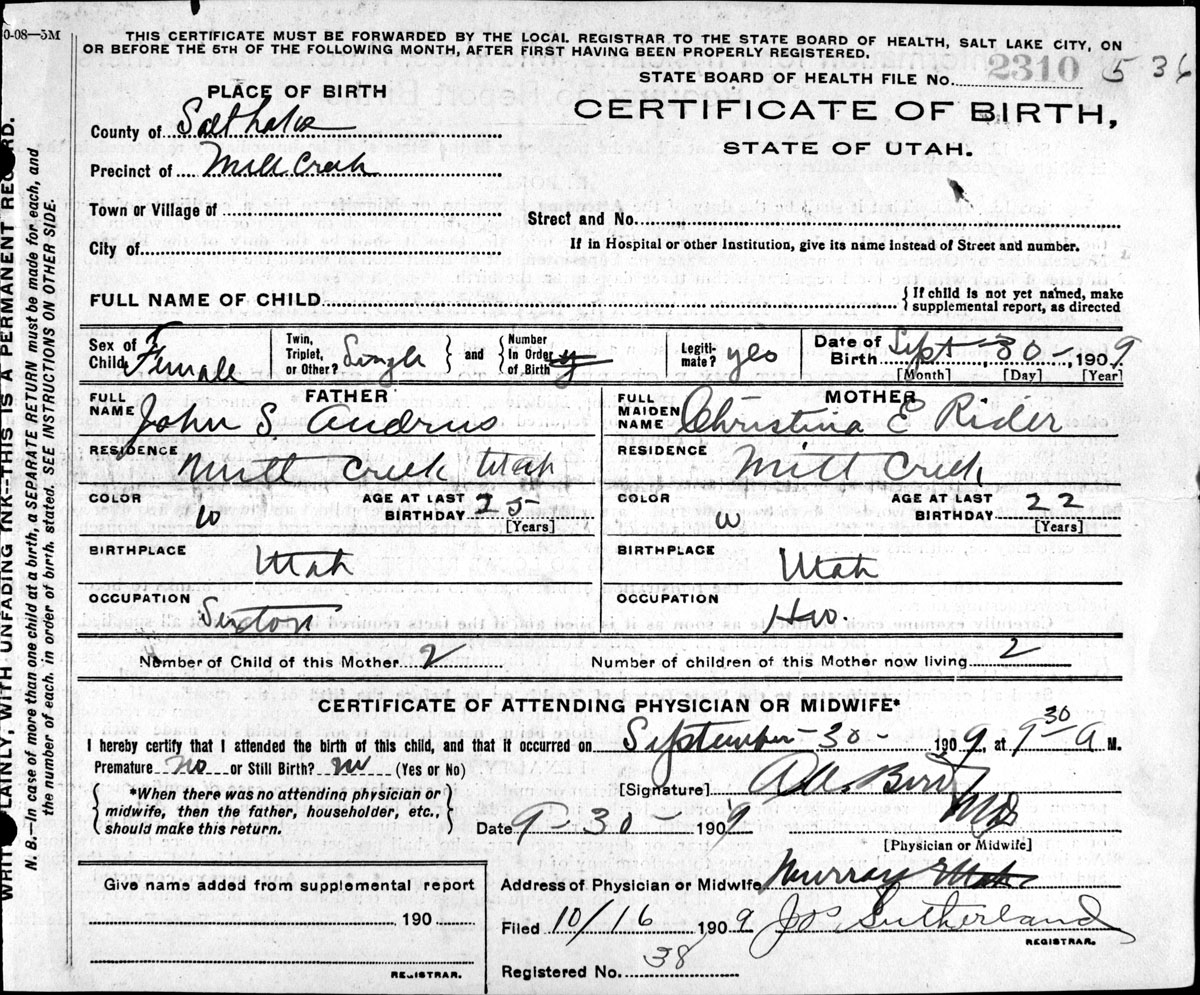 0-08—5M
THIS CERTIFICATE MUST BE FORWARDED BY THE LOCAL REGISTRAR TO THE STATE BOARD OF HEALTH, SALT LAKE CITY, ON
OR BEFORE THE 5TH OF THE FOLLOWING MONTH, AFTER FIRST HAVING BEEN PROPERLY REGISTERED.
STATE BOARD OF HEALTH FILE No. 2310 536
PLACE OF BIRTH
CERTIFICATE OF BIRTH,
STATE OF UTAH.
County of Salt Lake
Precinct of Mill Creek
Town or Village of
Street and No.
City of
If in Hospital or other Institution, give its name instead of Street and number.
FULL NAME OF CHILD
{If child is not yet named, make
supplemental report, as directed
Sex of Child Female
Twin, Triplet, or Other? Single
and
Number In Order of Birth
Legiti-mate? yes
Date of Birth Sept - 30 -, 1909
[Month] [Day] [Year]
FATHER
FULL NAME John S. Andrus
RESIDENCE Mill Creek Utah
COLOR W
AGE AT LAST BIRTHDAY 25
[Years]
BIRTHPLACE
Utah
OCCUPATION
Sexton
MOTHER
FULL MAIDEN NAME Christina E Rider
RESIDENCE
Mill Creek
COLOR W
AGE AT LAST BIRTHDAY 22
[Years]
BIRTHPLACE
Utah
OCCUPATION
Hw.
Number of Child of this Mother 2
Number of children of this Mother now living 2
CERTIFICATE OF ATTENDING PHYSICIAN OR MIDWIFE*
I hereby certify that I attended the birth of this child, and that it occurred on September - 30 - 1909, at 9 30 a M.
Premature No or Still Birth? No (Yes or No)
*When there was no attending physician or
midwife, then the father, householder, etc.,
should make this return.
[Signature]
MD
Date 9 - 30 - 1909
[Physician or Midwife]
Give name added from supplemental report
190
REGISTRAR.
Address of Physician or Midwife Murray Utah
Filed 10/16 1909 J P Sutherland
REGISTRAR.
Registered No. 38
LAINLY, WITH UNFADING INK--THIS IS A PERMANENT
N. B.—In case of more than one child at a birth, a SEPARATE RETURN must be made for each, and
the number of each, in order of birth, stated. SEE INSTRUCTIONS ON OTHER SIDE.